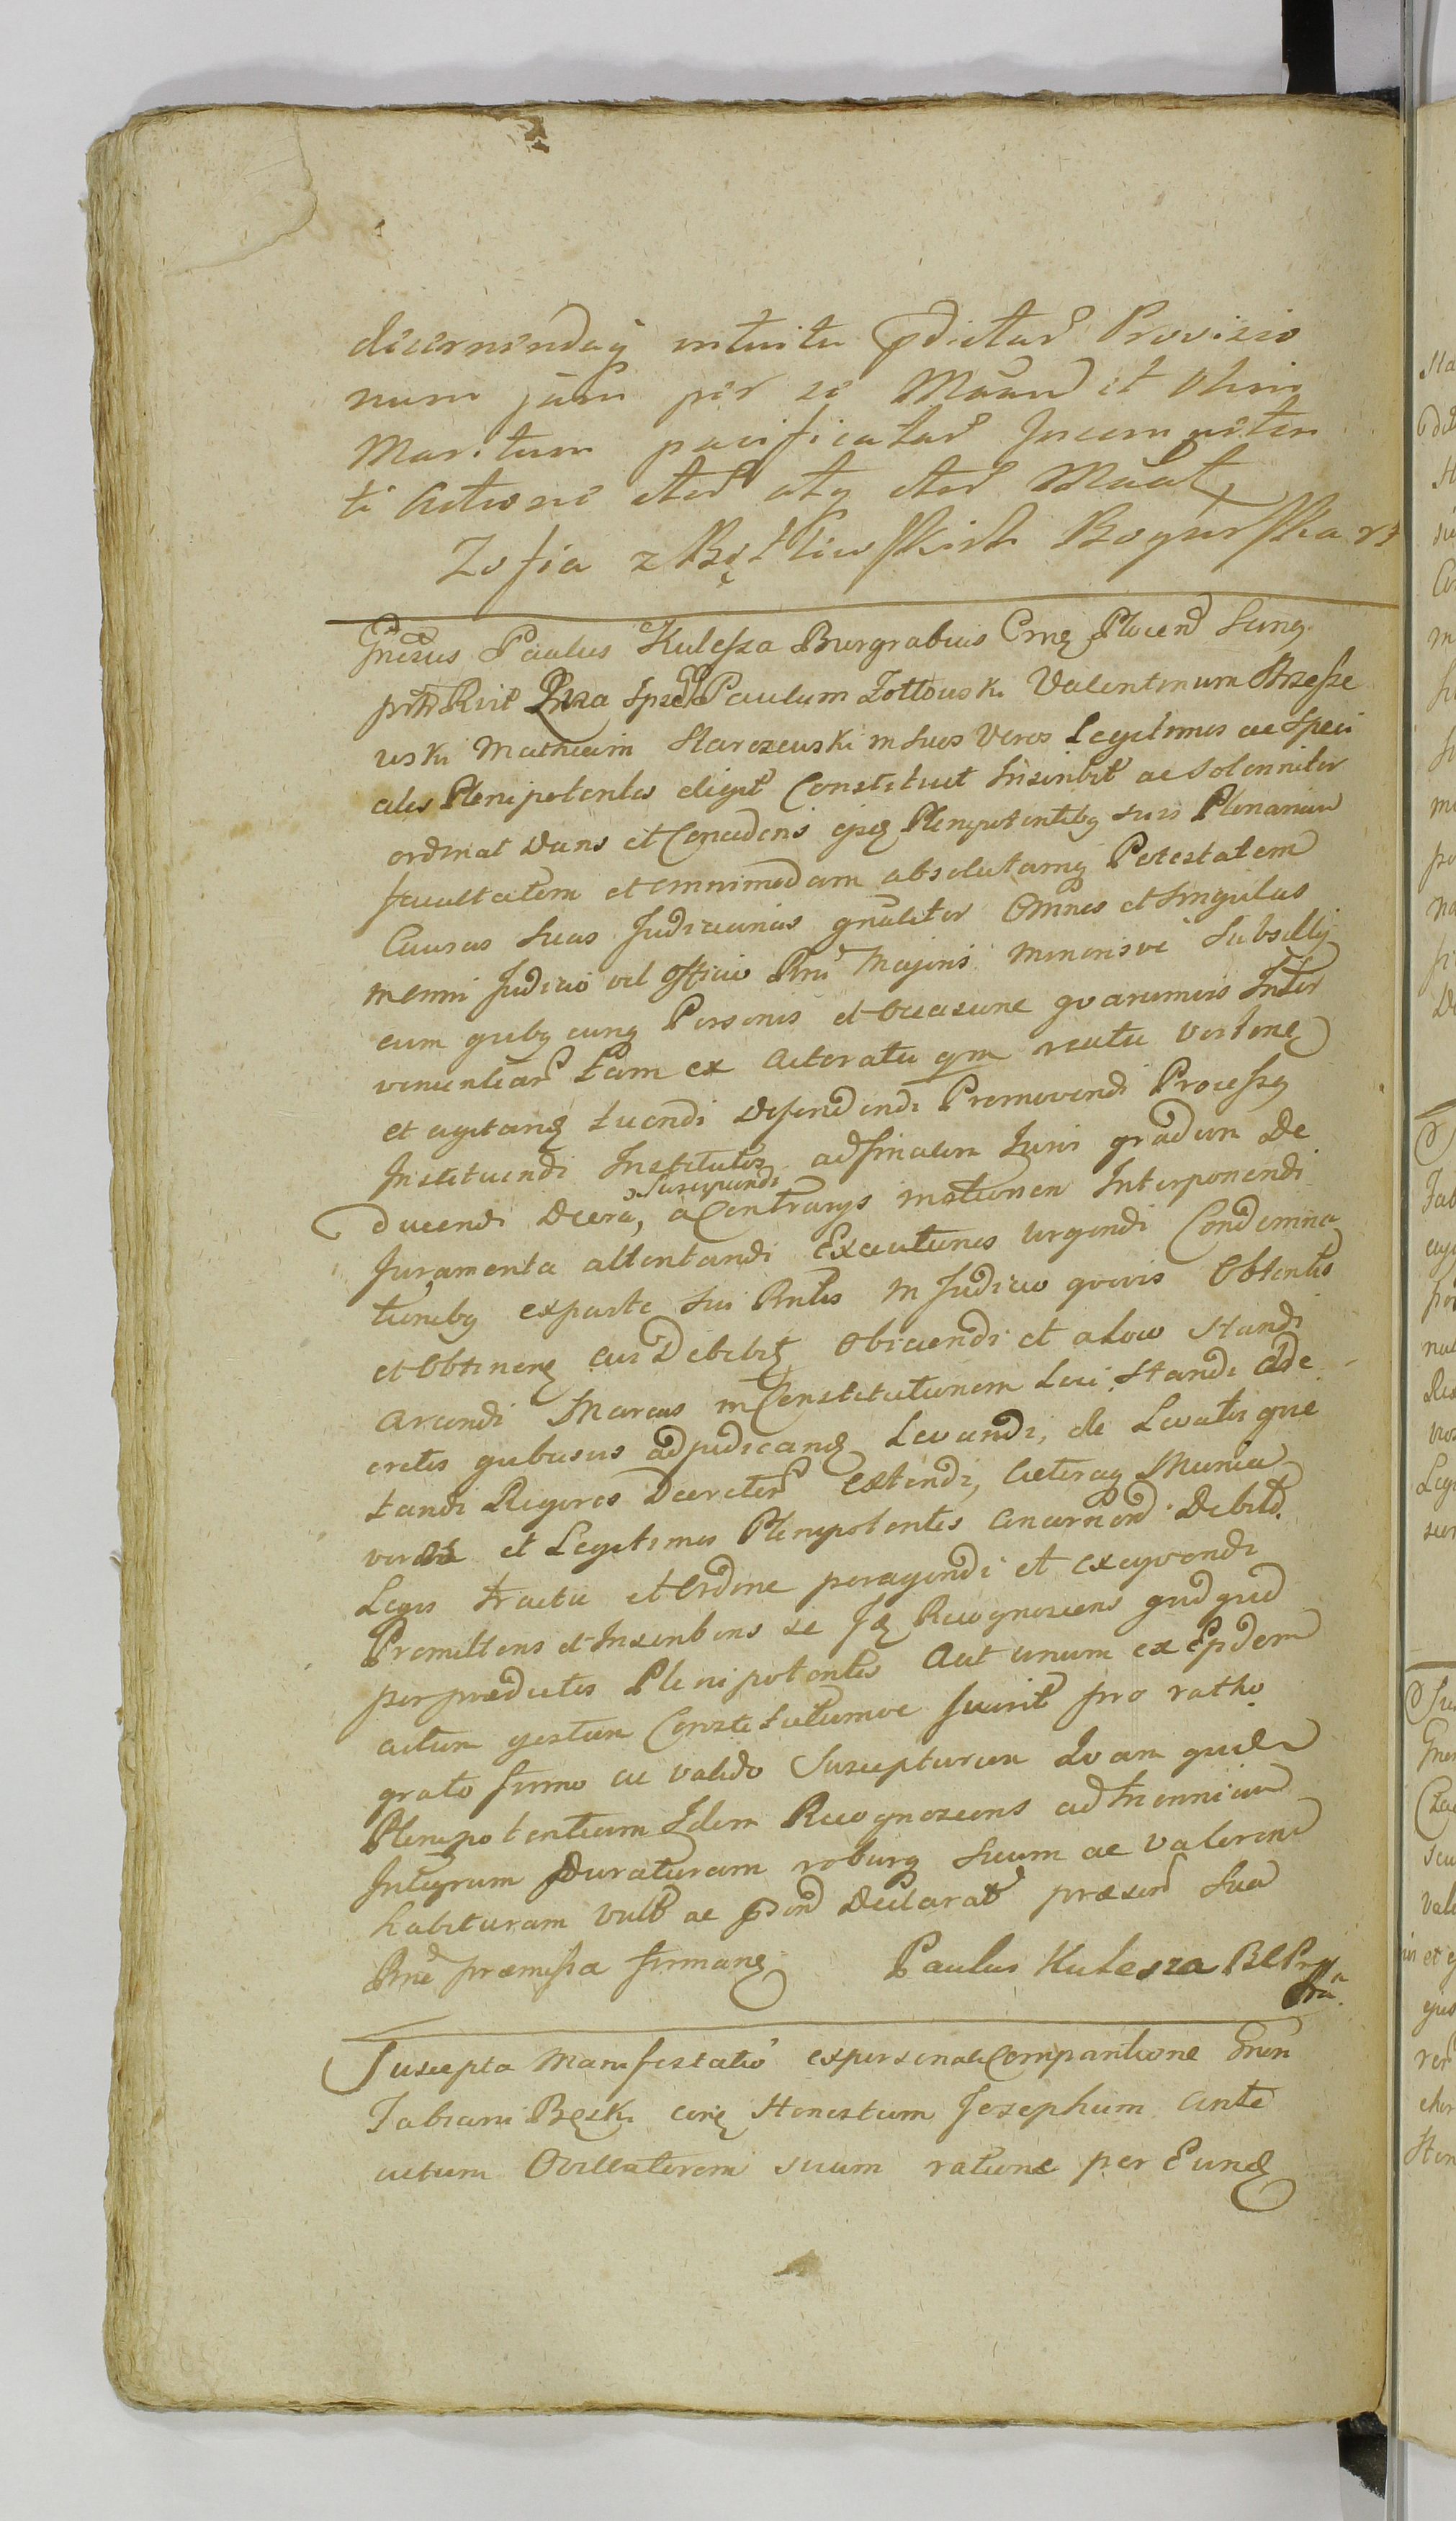 decernendaq intuitu pdictar Provisio
num jam per se Maan et Olim
Maritum pacificatar Jncom
ti Actione eter atq eter Maat
Zofia z Bogurska
Gnosus Paulus Kulesza Burgrabius Crnẽ Plocen Sanq
Rvit Paulum Żołtowski Valentinum Strzesze
wski Matheum Staroszewski in Suos Veros Legitimos ac Speci
ales Plenipotentes elegit Constituit Inscribit ac Solenniter
ordinat Dans et Concedens ejsq Plenipotentibq suis Plenariam
facultatem et omnimodam absolutamq Potestatem
Causas Suas Judiciarias gnaliter Omnes et Singulas
in omni Judicio vel Officio Rni Majoris Minorisve Subsellij
cum quibq cunq Personis et occasione qvarumvis Inter
venientiar tam ex Actoratu qm reatu verten
et agitan tuendi Defendendi Promovendi Processq
Instituendi Institutos ad finalem Juris gradum De
Suscipiendi
ducendi Dcera, a Contrarys motionem Interponendi
Juramenta attentandi Executiones Urgendi Condemna
tionibq ex parte Sui Rntis in Judicio qvovis Obtentis
et Obtinen cui Debebit Obiiciendi et a Loco Standi
Arcendi Marcas in Constitutionem Loci Standi e de
cretis quibusvis adjudican Levandi, de Levatis quie
tandi Rigores Decretor Extendi, Ceteraq Munia
veros et Legitimos Plenipotentes Concernen Debito
Legis tractu et Ordine peragendi et exeqvendi
Promittens et Inscribens se Jd Recognoscens quidquid
per praedictos Plenipotentes Aut unum ex Epdem
actum gestum Constitutumve fuerit pro ratho
grato firmo ac valido Suscepturum Qvam quid
Plenipotentiam Idem Recognoscens ad triennium
Integrum Duraturam roburq Suum ac valorem
habituram Vult ac Declarat praesen Sua
Rne praemissa firman Paulus Kulesza BCP
Suscepta Manifestatio ex personali Comparitione Gnen
Fabiani Bęsk. con Honestum Josephum ante
actum Ovillatorem suum ratione per Eund